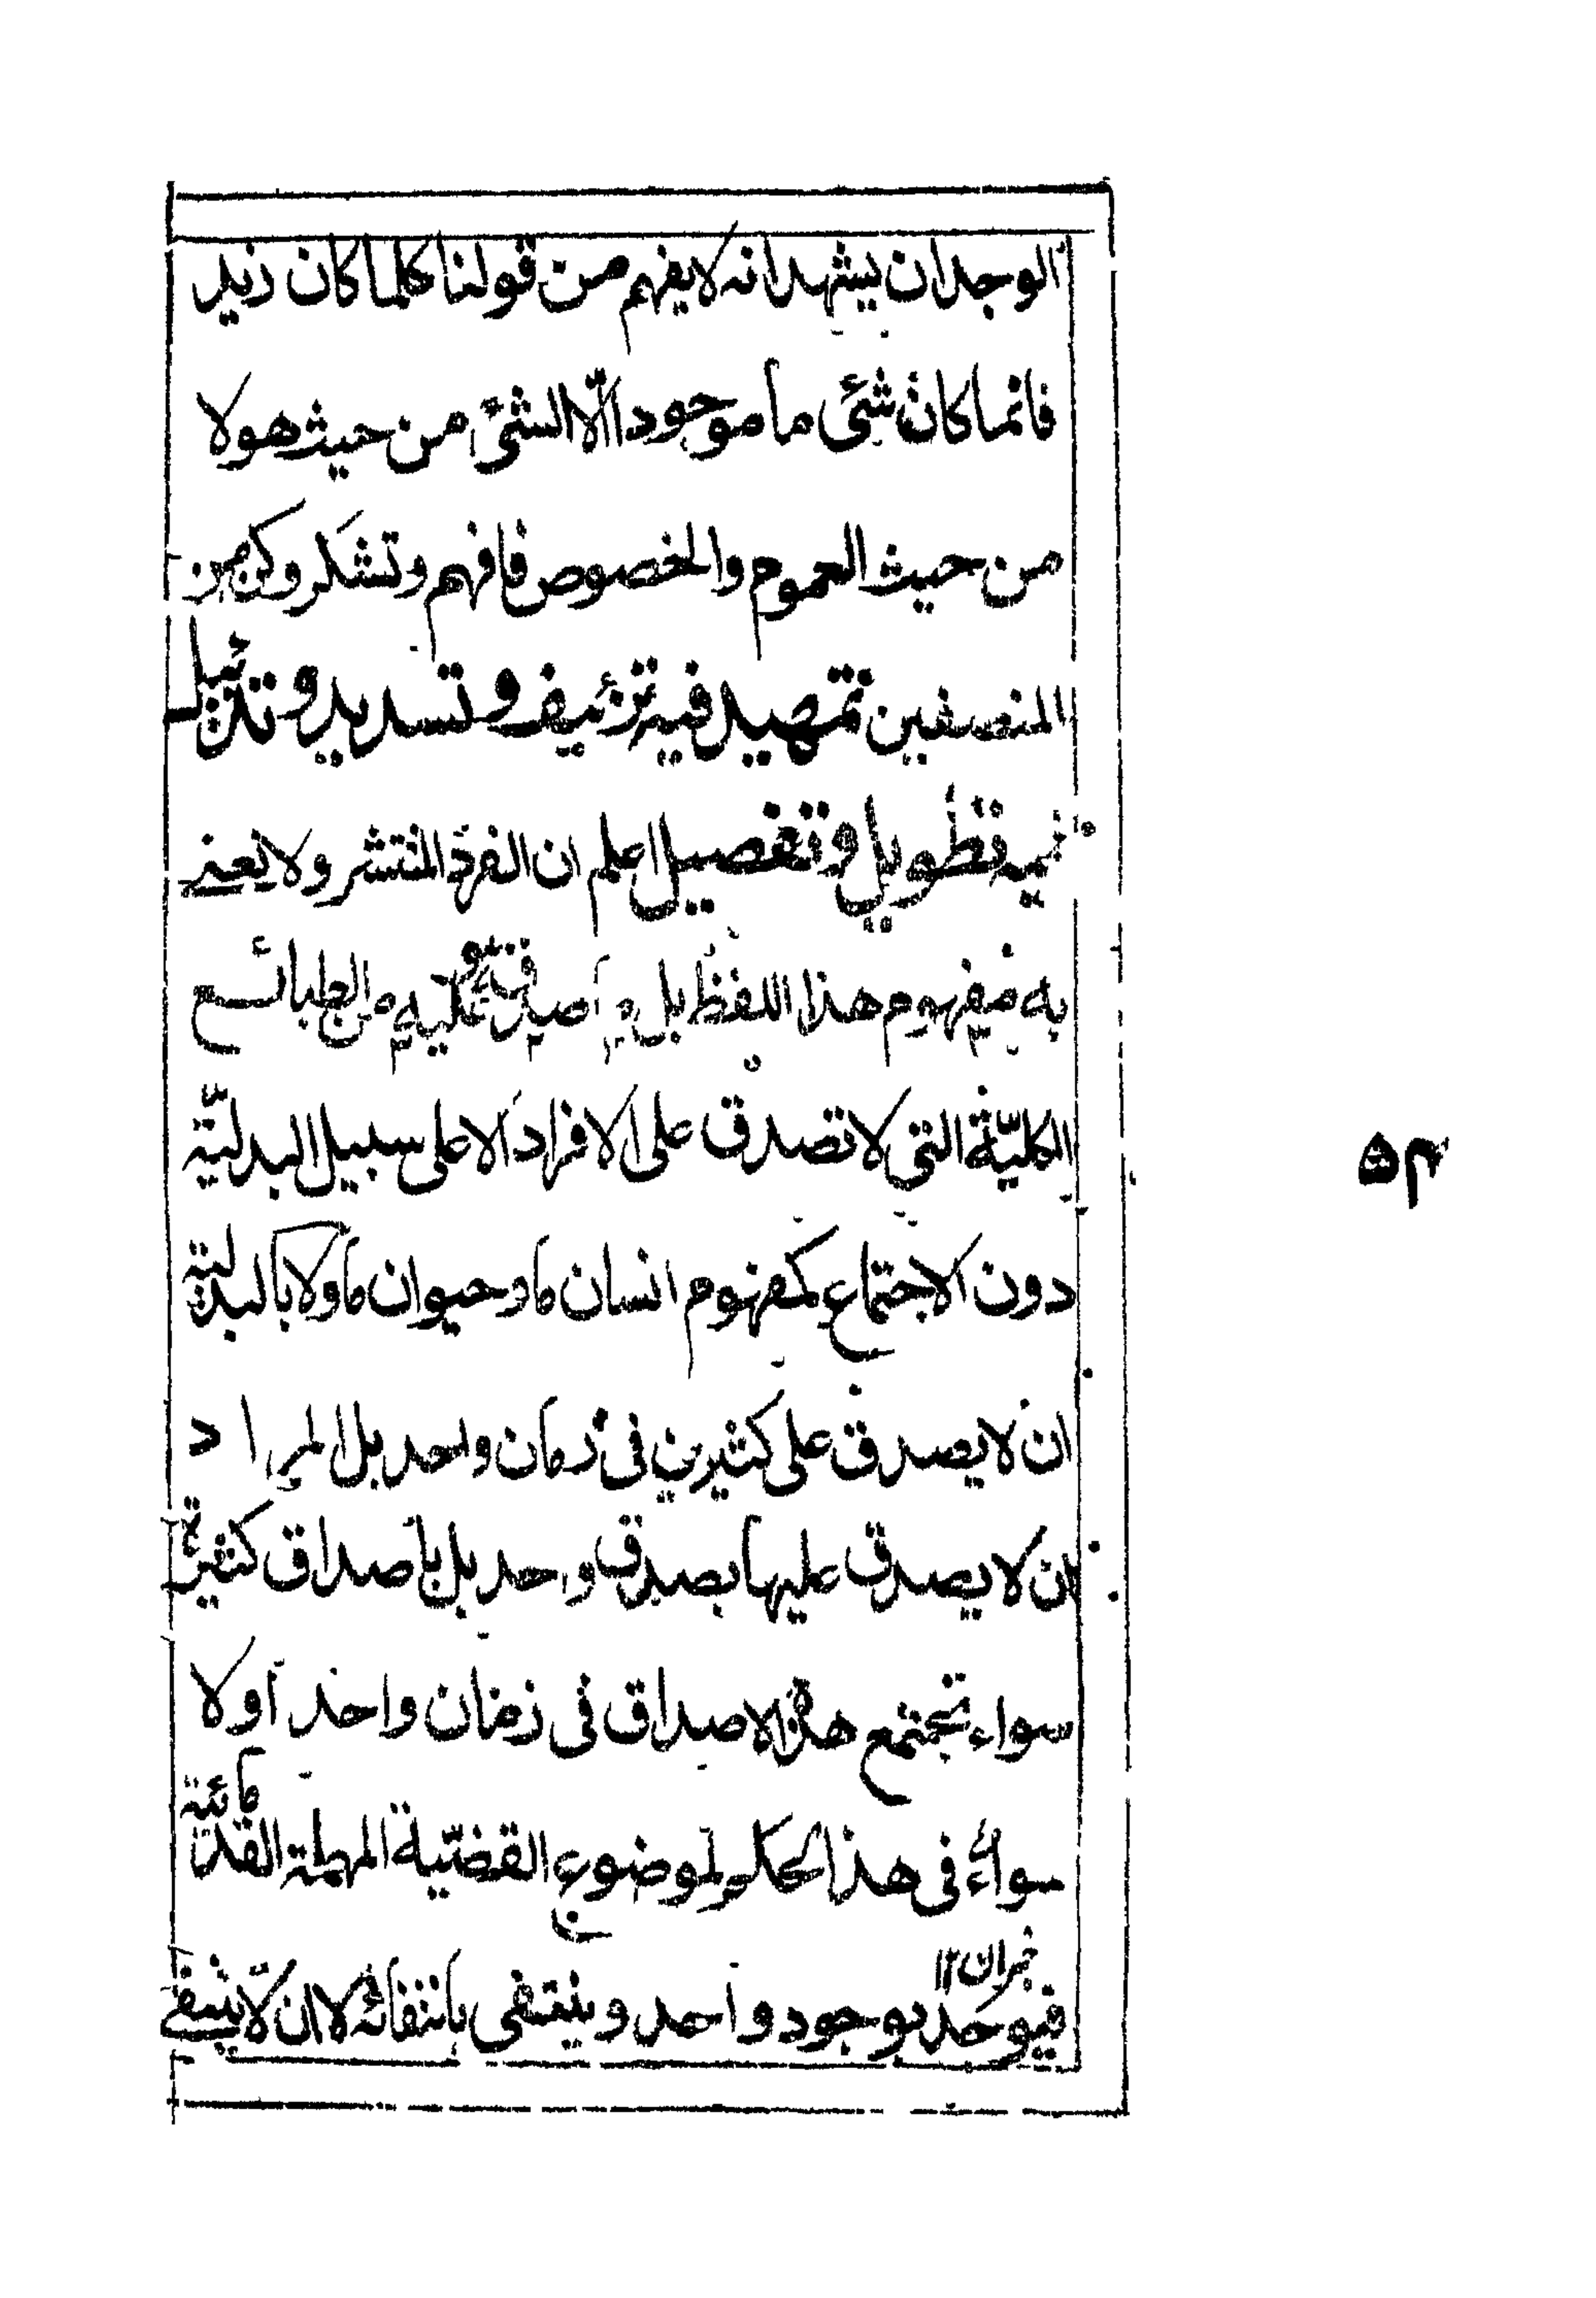 الوجدان يشهد انه لا يفهم من قولنا كلما كان زيد
فانما كان شئ ما موجودا الّا الشئ من حيث هو لا
من حيث العموم والخصوص فافهم وتشكر وكن من
المنصفين تمهيد فيه تزئيف وتسديد وتذئيل
فيه تطويل وتفصيل اعلم ان الفرد المنتشر ولا يعنى
به مفهوم هذا اللفظ بل ما صدقته عليه من الطبائع
الكليّة التى لا تصدق على الافراد الا على سبيل البدليّة
دون الاجتماع كمفهوم انسان ما وحيوان ما ولا بالبدلية
ان لا يصدق على كثيرين فى زمان واحد بل المراد
ان لا يصدق عليها بصدق واحد بل باصداق كثيرة
سواء تجتمع هذه الاصداق فى زمان واحد او لا
سواءٌ فى هذا الحكم لموضوع القضيّة المهملة القدمائية
خبر ان ١٢
فيوجد بوجود واحد وينتفى بانتفائه لا ان لا ينتفى
٥٣